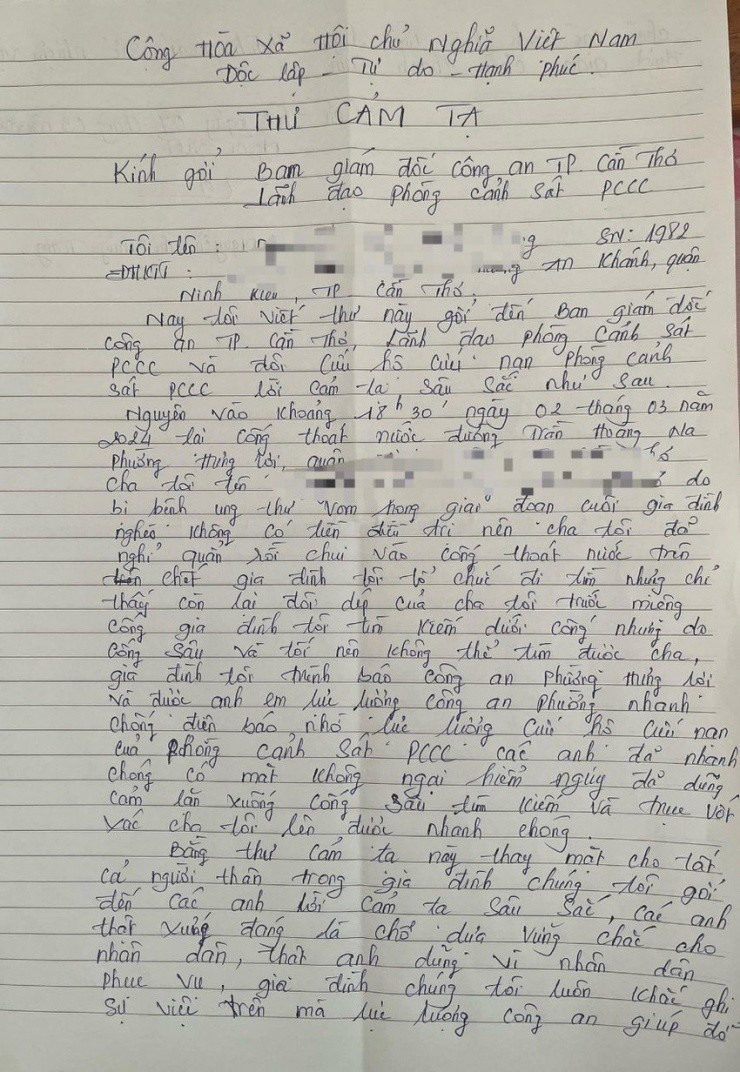 Cộng Hòa Xã Hội chủ Nghĩa Việt Nam
Độc lập - Tự do - Hạnh phúc.
THƯ CẢM TẠ
Kính gởi Ban giám đốc Công an TP. Cần Thơ
Lãnh đạo phòng cảnh sát PCCC
Tôi tên : SN: 1982
ĐKTT : An Khánh, quận
Ninh Kiều, TP. Cần Thơ.
Nay tôi viết thư này gởi đến Ban giám đốc
công an TP. Cần Thơ, Lãnh đạo phòng Cảnh sát
PCCC và đội Cứu hộ cứu nạn phòng cảnh
sát PCCC lời cảm tạ sâu sắc như sau.
Nguyên vào khoảng 18h30' ngày 02 tháng 03 năm
2024 tại cống thoát nước đường Trần Hoàng Na
phường Hưng lợi, quận
cha tôi tên do
bị bệnh ung thư vòm họng giai đoạn cuối gia đình
nghèo không có tiền điều trị nên cha tôi đã
nghĩ quẩn rồi chui vào cống thoát nước trên
chết gia đình tôi tổ chức đi tìm nhưng chỉ
thấy còn lại đôi dép của cha tôi trước miệng
cống gia đình tôi tìm kiếm dưới cống nhưng do
cống sâu và tối nên không thể tìm được cha,
gia đình tôi trình báo công an phường Hưng lợi
và được anh em lực lượng công an phường nhanh
chống điện báo nhờ lực lượng cứu hộ cứu nạn
của phòng cảnh sát PCCC các anh đã nhanh
chống có mặt không ngại hiểm nguy đã dũng
cảm lặn xuống cống sâu tìm kiếm và trục vớt
xác cha tôi lên được nhanh chống.
Bằng thư cảm tạ này thay mặt cho tất
cả người thân trong gia đình chúng tôi gởi
đến các anh lời cảm tạ sâu sắc, các anh
thật xứng đáng là chổ dựa vững chắc cho
nhân dân, thật anh dũng vì nhân dân
phục vụ, gia đình chúng tôi luôn khắc ghi
sự việc trên mà lực lượng công an giúp đở